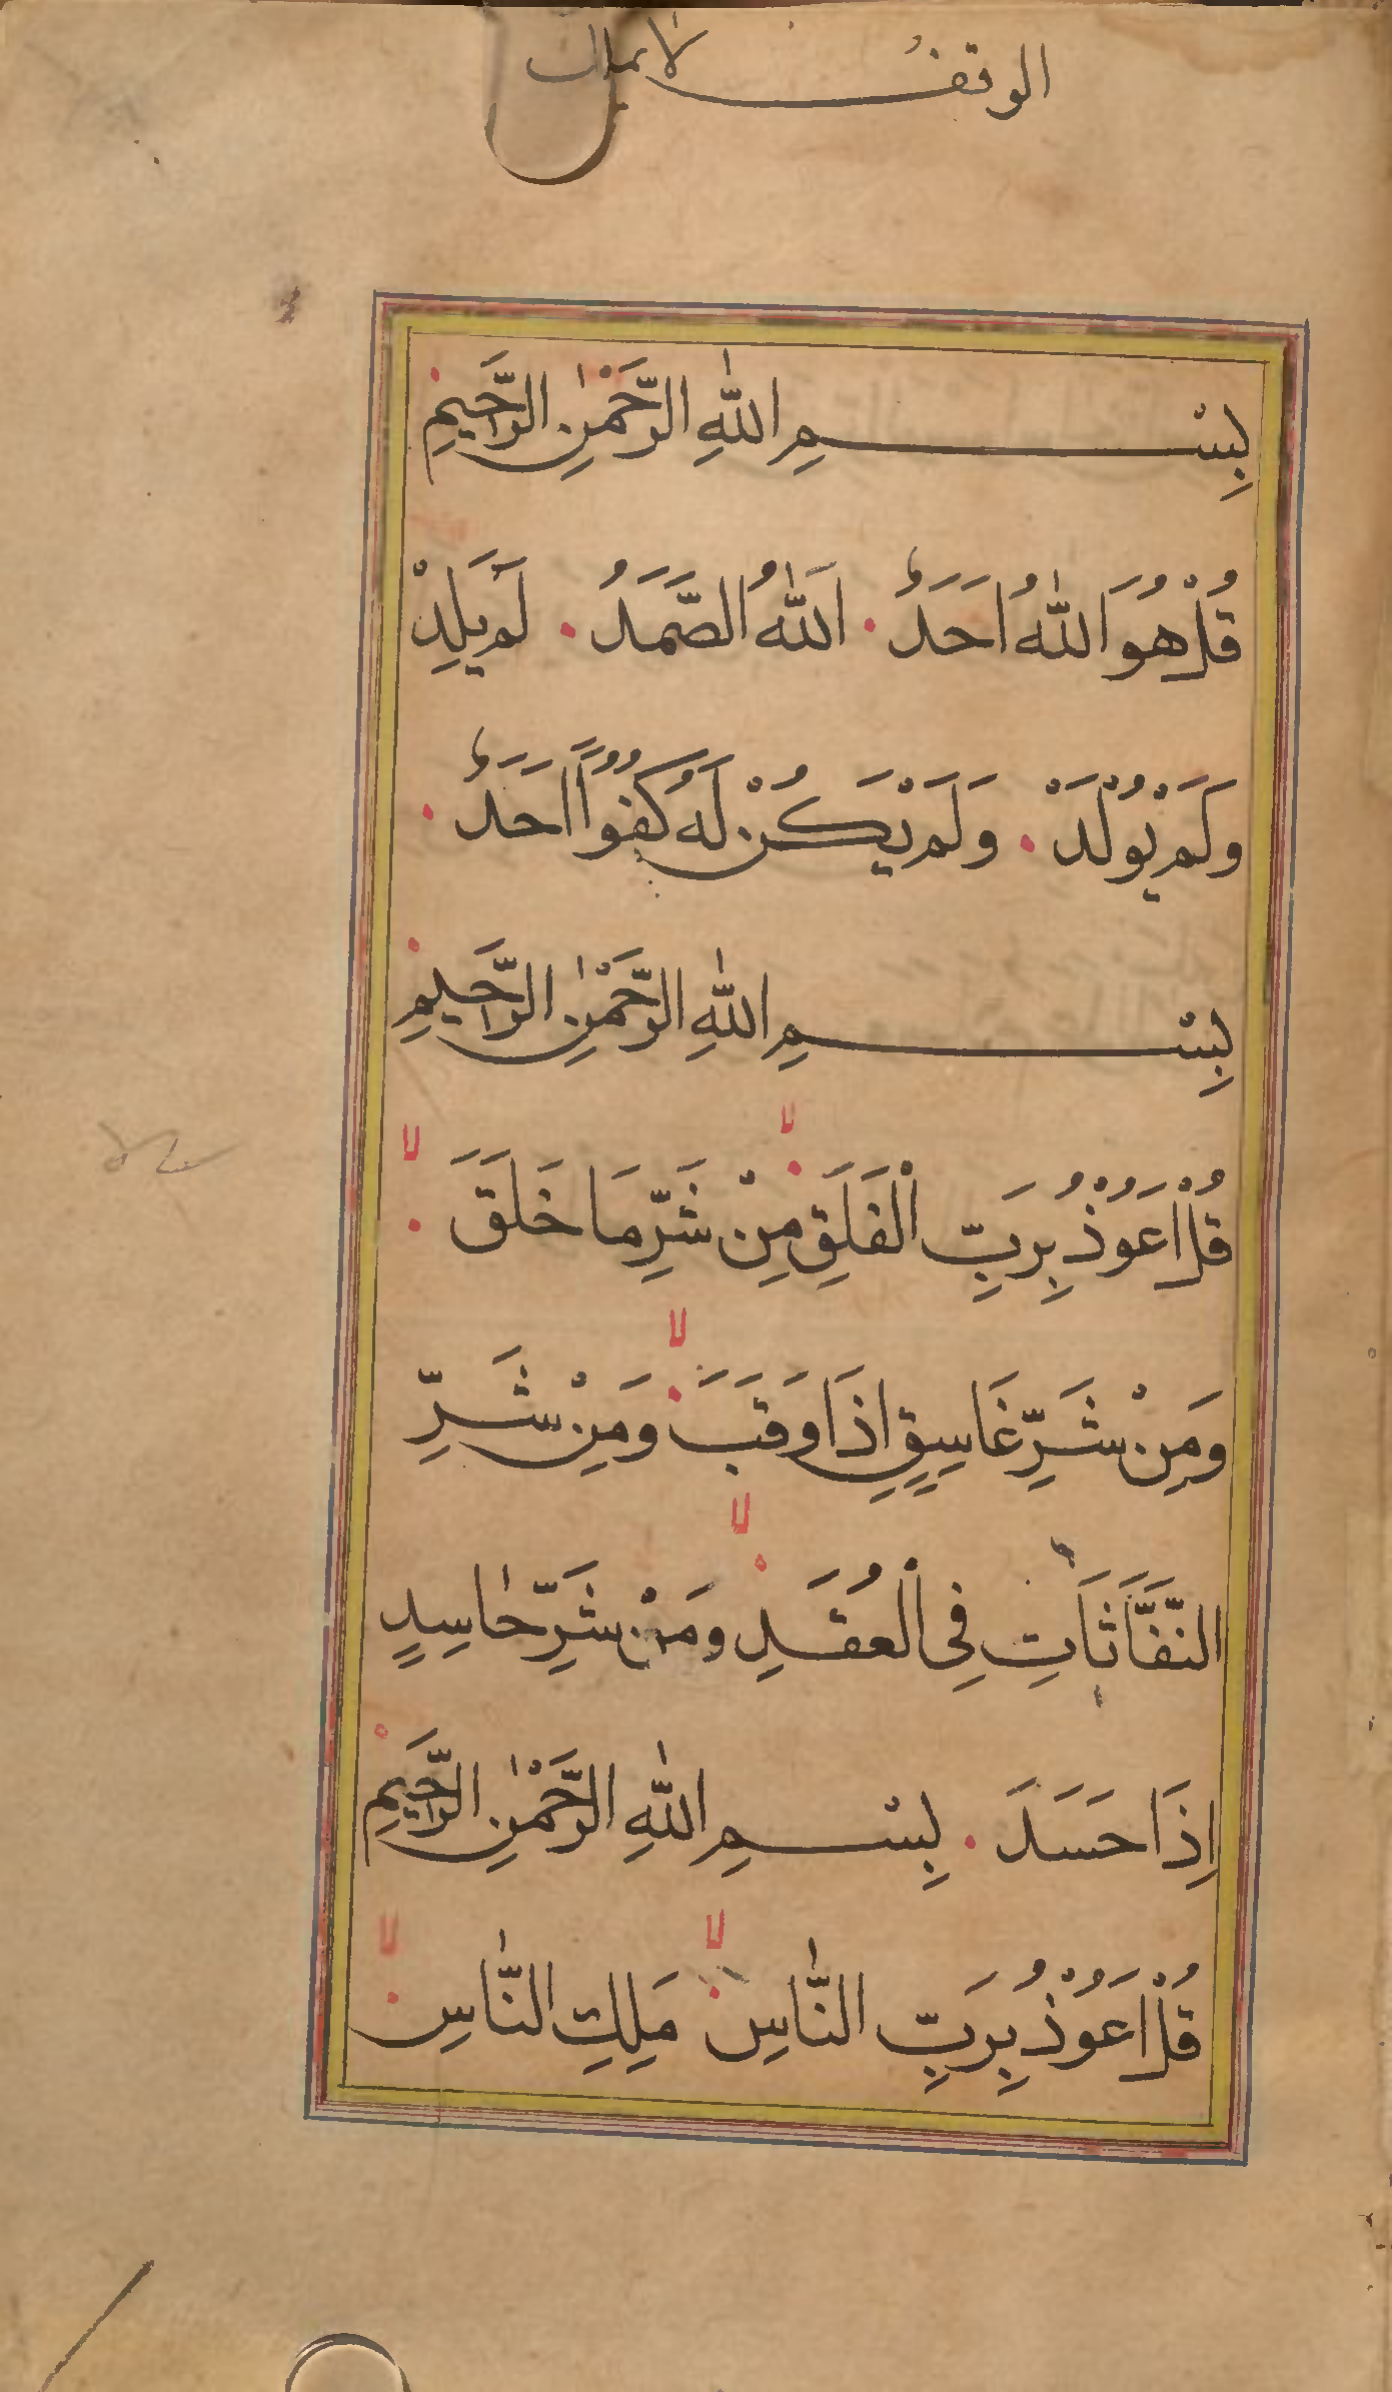 الوقف لا يملك
بِسْمِ اللّٰهِ الرَّحْمٰنِ الرَّحٖيمِ
قُلْ هُوَ اللّٰهُ اَحَدٌ ۰ اَللّٰهُ الصَّمَدُ ۰ لَمْ يَلِدْ
وَلَمْ يُوْلَدْ ۰ وَلَمْ يَكُنْ لَهُ كُفُوًا اَحَدٌ ۰
بِسْمِ اللّٰهِ الرَّحْمٰنِ الرَّحٖيمِ
قُلْ اَعُوْذُ بِرَبِّ الْفَلَقِ ۙ مِنْ شَرِّ مَا خَلَقَ ۙ
وَمِنْ شَرِّ غَاسِقٍ اِذَا وَقَبَ ۙ وَمِنْ شَرِّ
النَّفَّاثَاتِ فِى الْعُقَدِ ۙ وَمِنْ شَرِّ حَاسِدٍ
اِذَا حَسَدَ ۰ بِسْمِ اللّٰهِ الرَّحْمٰنِ الرَّحٖيمِ
قُلْ اَعُوْذُ بِرَبِّ النَّاسِ ۙ مَلِكِ النَّاسِ ۙ